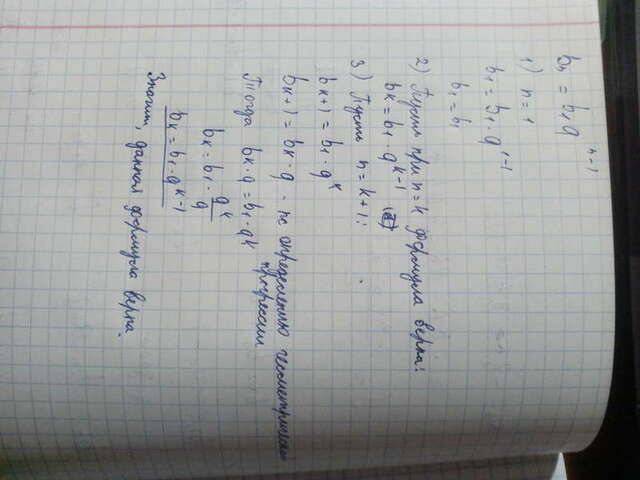 bn = b1 q^n-1
1) n = 1
b1 = b1 · q^1-1
b1 = b1
2) Пусть при n = k формула верна:
bk = b1 · q^k-1
3) Пусть n = k+1:
bk+1 = b1 · q^k
bk+1 = bk · q - по определению геометрической
прогрессии
Тогда bk · q = b1 · q^k
bk = b1 · q^k/q
bk = b1 · q^k-1
Значит, данная формула верна.